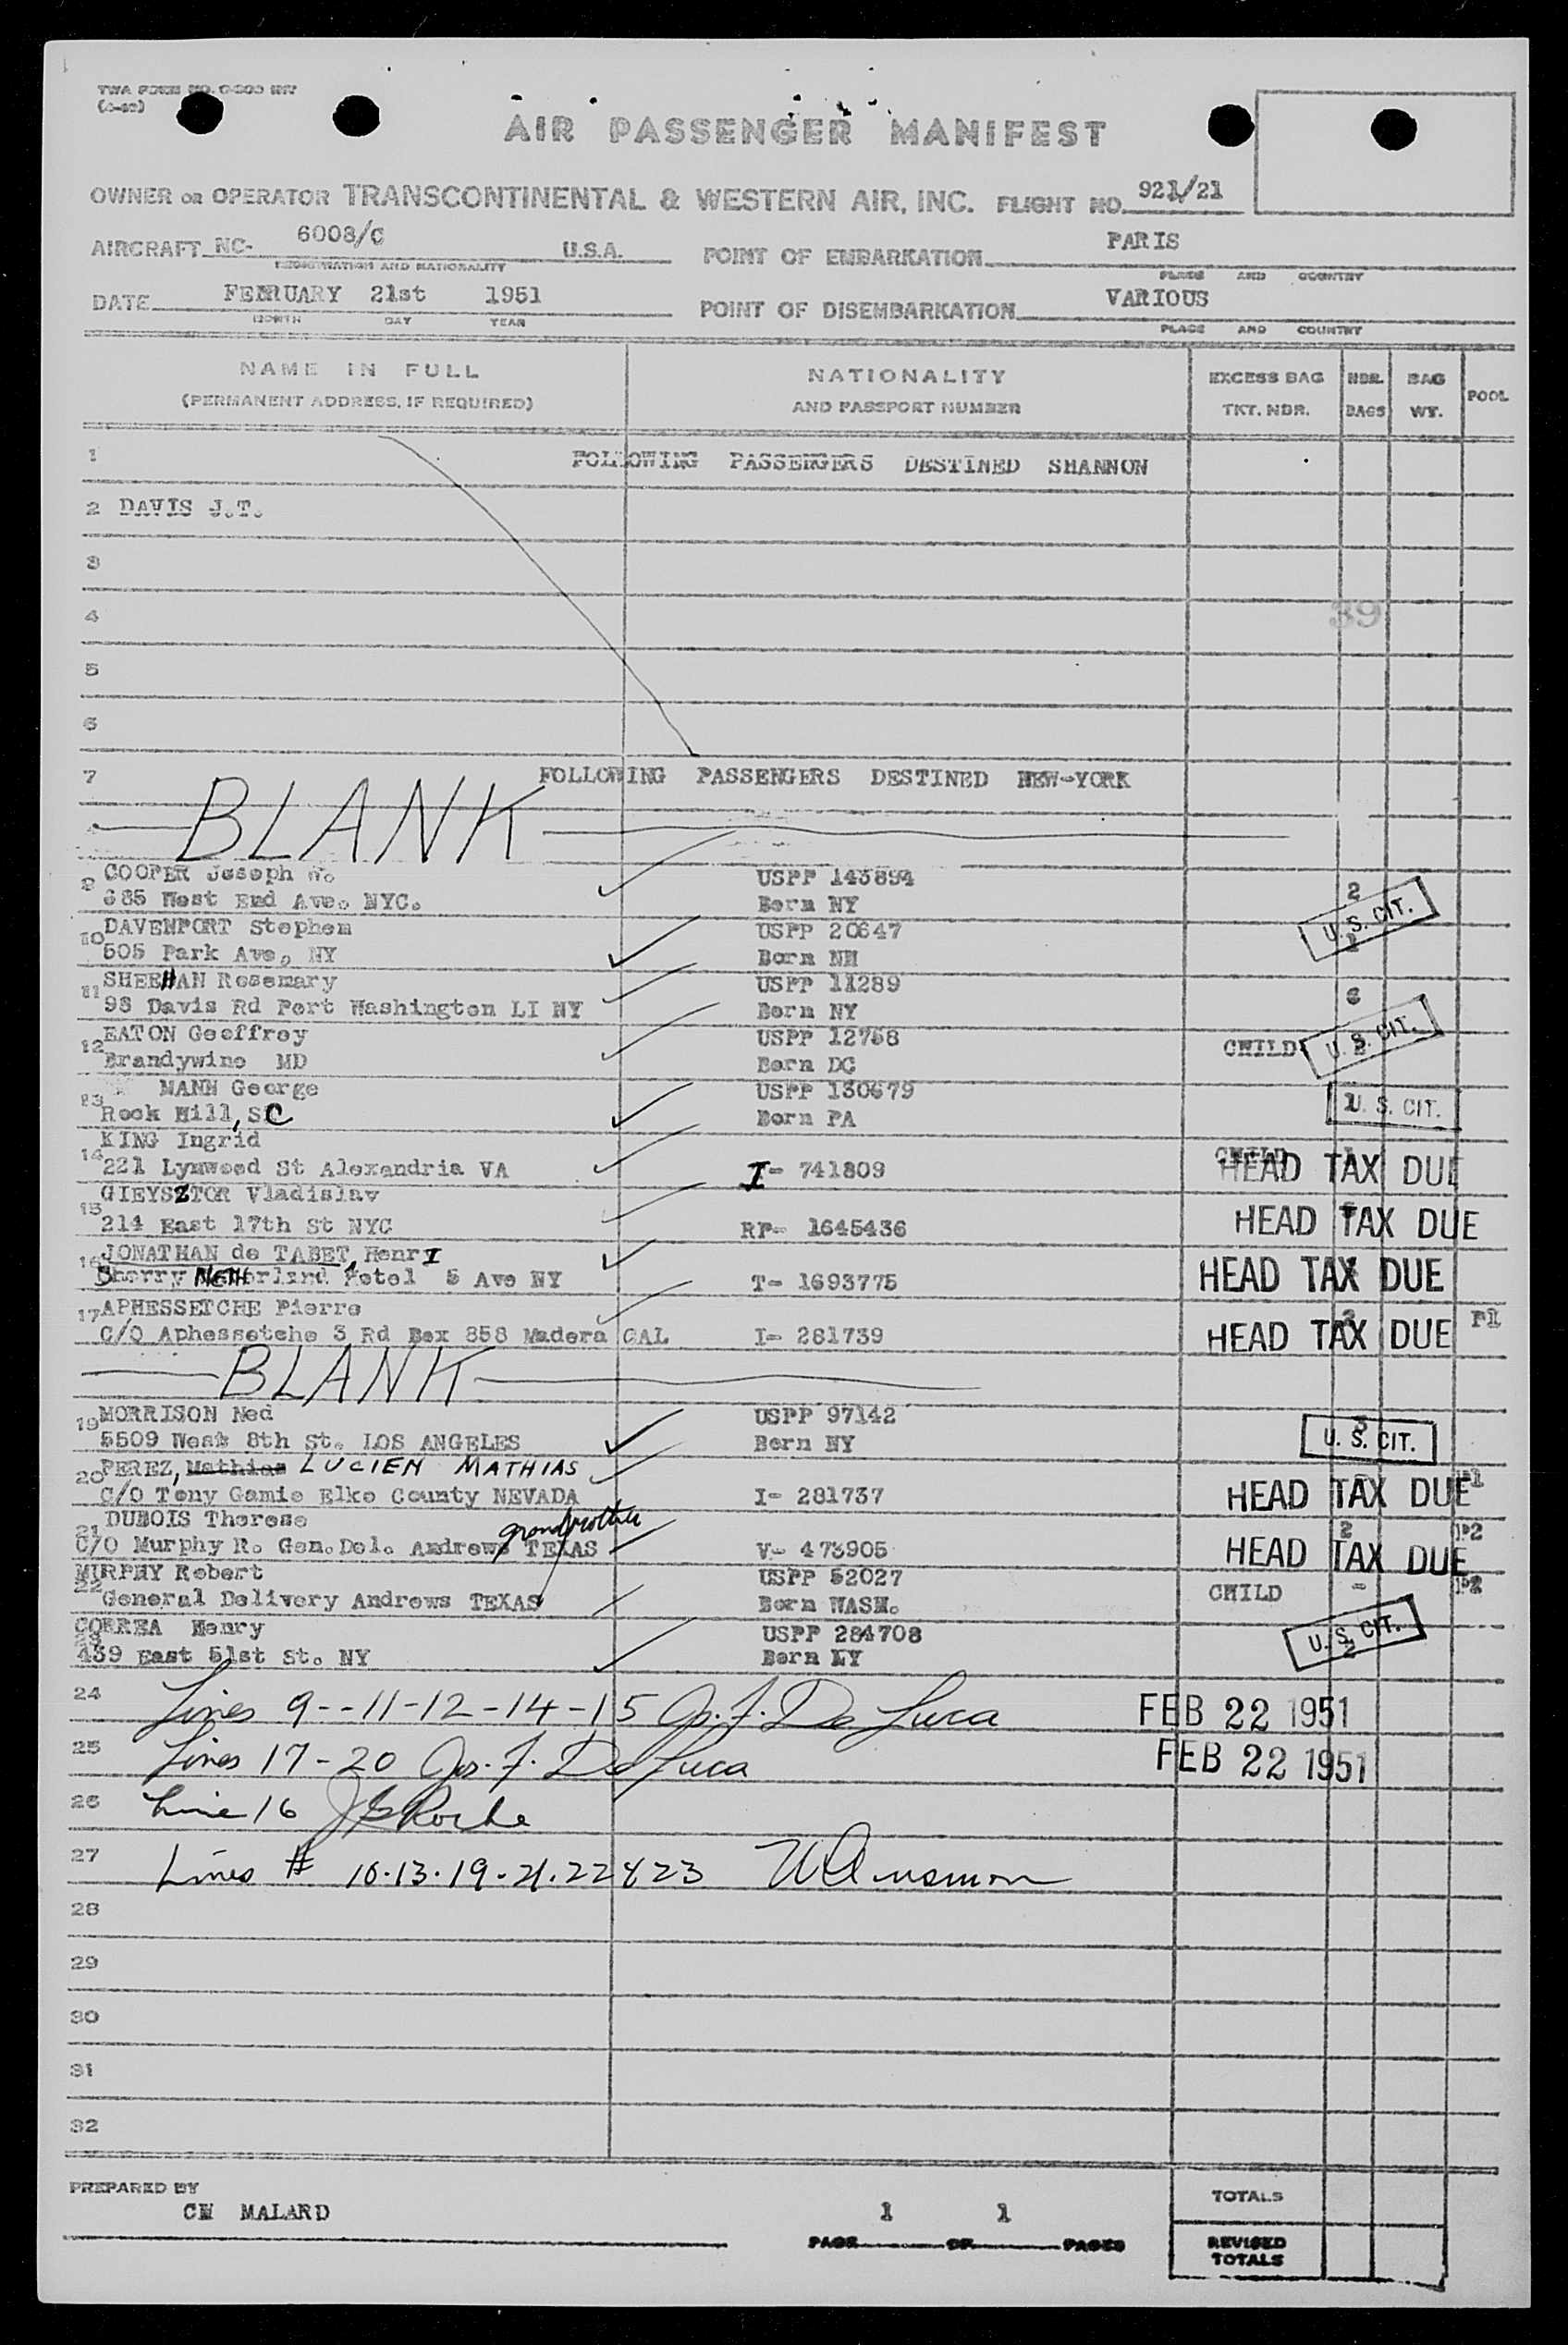 TWA FORM NO.
AIR PASSENGER MANIFEST
OWNER OR OPERATOR TRANSCONTINENTAL & WESTERN AIR, INC. FLIGHT NO. 921/21
AIRCRAFT NC- 6008/C U.S.A. POINT OF EMBARKATION PARIS
REGISTRATION AND NATIONALITY PLACE AND COUNTRY
DATE FEBRUARY 21st 1951 POINT OF DISEMBARKATION VARIOUS
MONTH DAY YEAR PLACE AND COUNTRY
NAME IN FULL NATIONALITY EXCESS BAG NBR. BAG POOL
(PERMANENT ADDRESS, IF REQUIRED) AND PASSPORT NUMBER TKT. NBR. BAGS WT.
1 FOLLOWING PASSENGERS DESTINED SHANNON
2 DAVIS J.T.
3
4 39
5
6
7 FOLLOWING PASSENGERS DESTINED NEW-YORK
BLANK
9 COOPER Joseph W. USPP 143894 2
685 West End Ave. NYC. Born NY U. S. CIT.
10 DAVENPORT Stephen USPP 20647
505 Park Ave, NY Born NH
11 SHEEHAN Rosemary USPP 11289
98 Davis Rd Port Washington LI NY Born NY
12 EATON Geoffrey USPP 12758 CHILD U. S. CIT.
Brandywine MD Born DC
13 MANN George USPP 130679
Rock Hill, SC Born PA U. S. CIT.
14 KING Ingrid CHILD
221 Lynwood St Alexandria VA I- 741809 HEAD TAX DUE
15 GIEYSZTOR Vladislav
214 East 17th St NYC RP- 1645436 HEAD TAX DUE
16 JONATHAN de TABET, HenrI
Sherry NETHerland Hotel 5 Ave NY T- 1693775 HEAD TAX DUE
17 APHESSETCHE Pierre P1
C/O Aphessetche 3 Rd Box 858 Madera CAL I- 281739 HEAD TAX DUE
BLANK
19 MORRISON Ned USPP 97142
5509 West 8th St. LOS ANGELES Born NY U. S. CIT.
20 PEREZ, Mathias LUCIEN MATHIAS
C/O Tony Gamie Elko County NEVADA I- 281737 HEAD TAX DUE
21 DUBOIS Therese grandmother 2 P2
C/O Murphy R. Gen.Del. Andrews TEXAS V- 473905 HEAD TAX DUE
22 MURPHY Robert USPP 52027 CHILD - P2
General Delivery Andrews TEXAS Born WASH.
23 CORREA Henry USPP 284708 U. S. CIT.
439 East 51st St. NY Born NY 2
24 Lines 9--11-12-14-15 Jos. F. De Luca FEB 22 1951
25 Lines 17-20 Jos. F. De Luca FEB 22 1951
26 Line 16
27 Lines # 10.13.19.21.22 & 23
28
29
30
31
32
PREPARED BY TOTALS
CH MALARD 1 1
PAGE OF PAGES REVISED
TOTALS